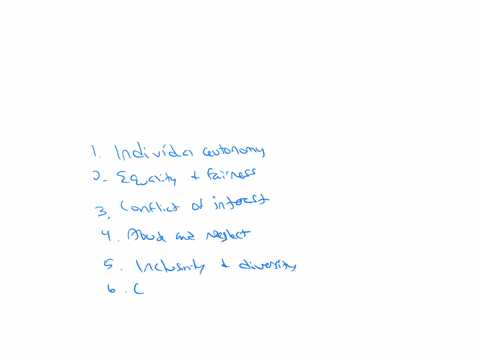 1. Individal autonomy
2. Equality & fairness
3. Conflict of interest
4. Abuse and neglect
5. Inclusivity & diversity
6. C